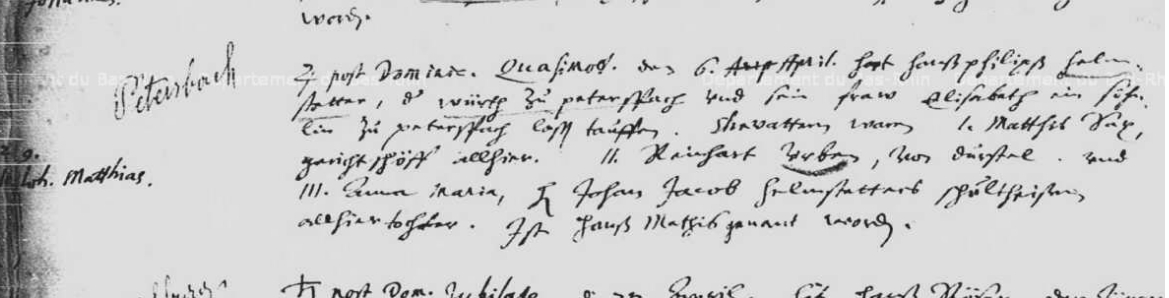 word.
Petersbach
♃ post Dominic. Quasimod. den 6 April. hat Hanß Philipß Helm-
stetter, d würth zu peterspach und sein fraw Elisabeth ein söhn-
lin zu peterspach lass tauffen. Gevattern waren I. Matthis
gericht schöff allhier. II. Reinhart Urben, von dürstel. und
Joh. Matthias.
III. Anna Maria, H Johan Jacob Helmstetters schultheisen
allhier tochter. Ist Hanß Mathis genant word.
post Dom. Jubilate